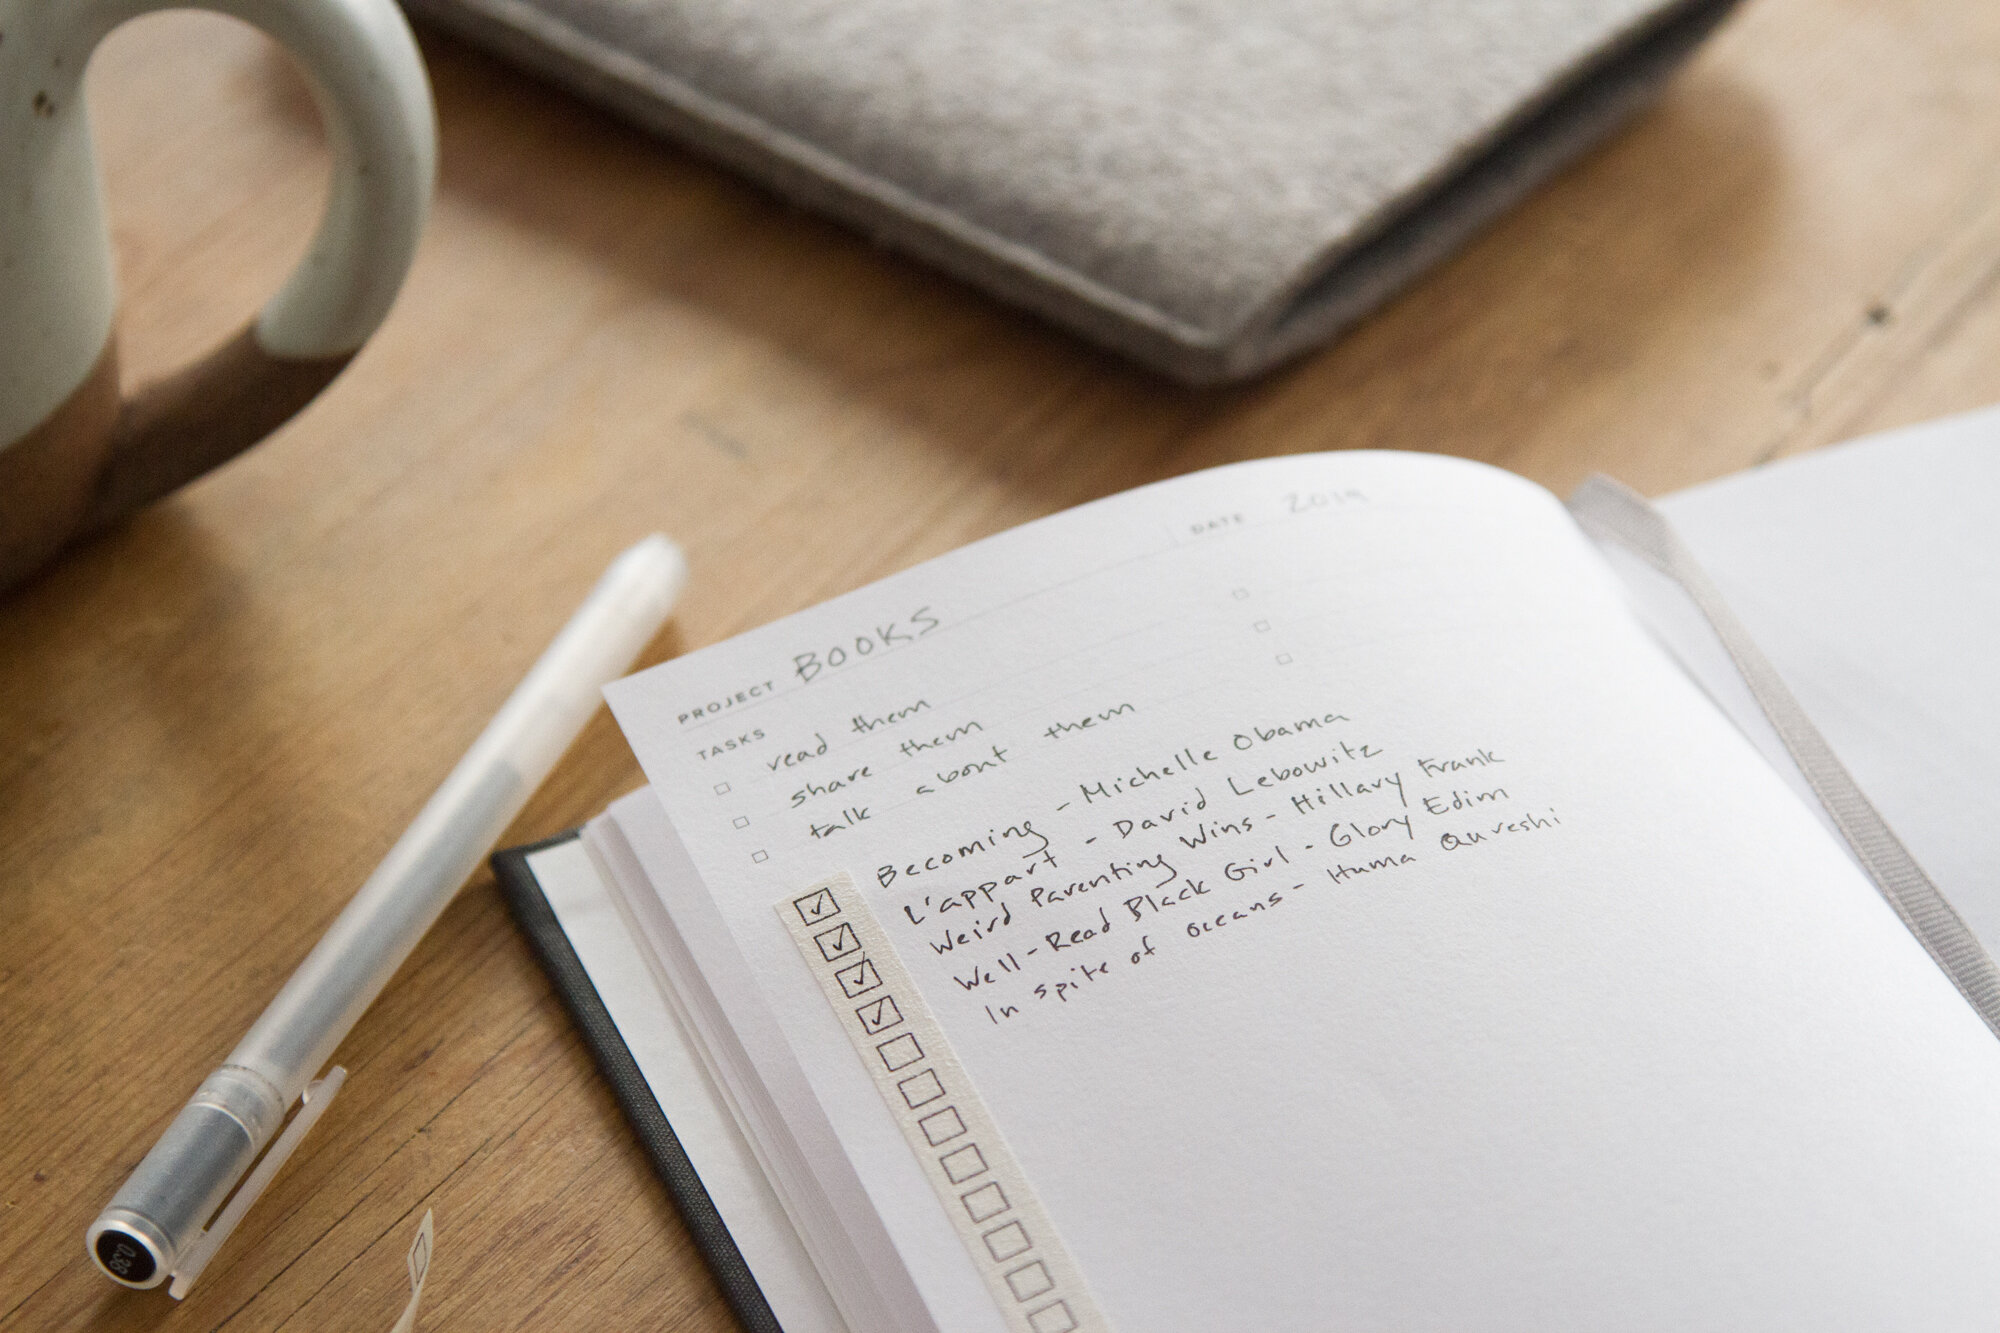 PROJECT BOOKS DATE 2019
TASKS
read them
share them
talk about them
Becoming - Michelle Obama
L'appart - David Lebowitz
Weird Parenting Wins - Hillary Frank
Well-Read Black Girl - Glory Edim
In spite of oceans - Huma Qureshi
0.38